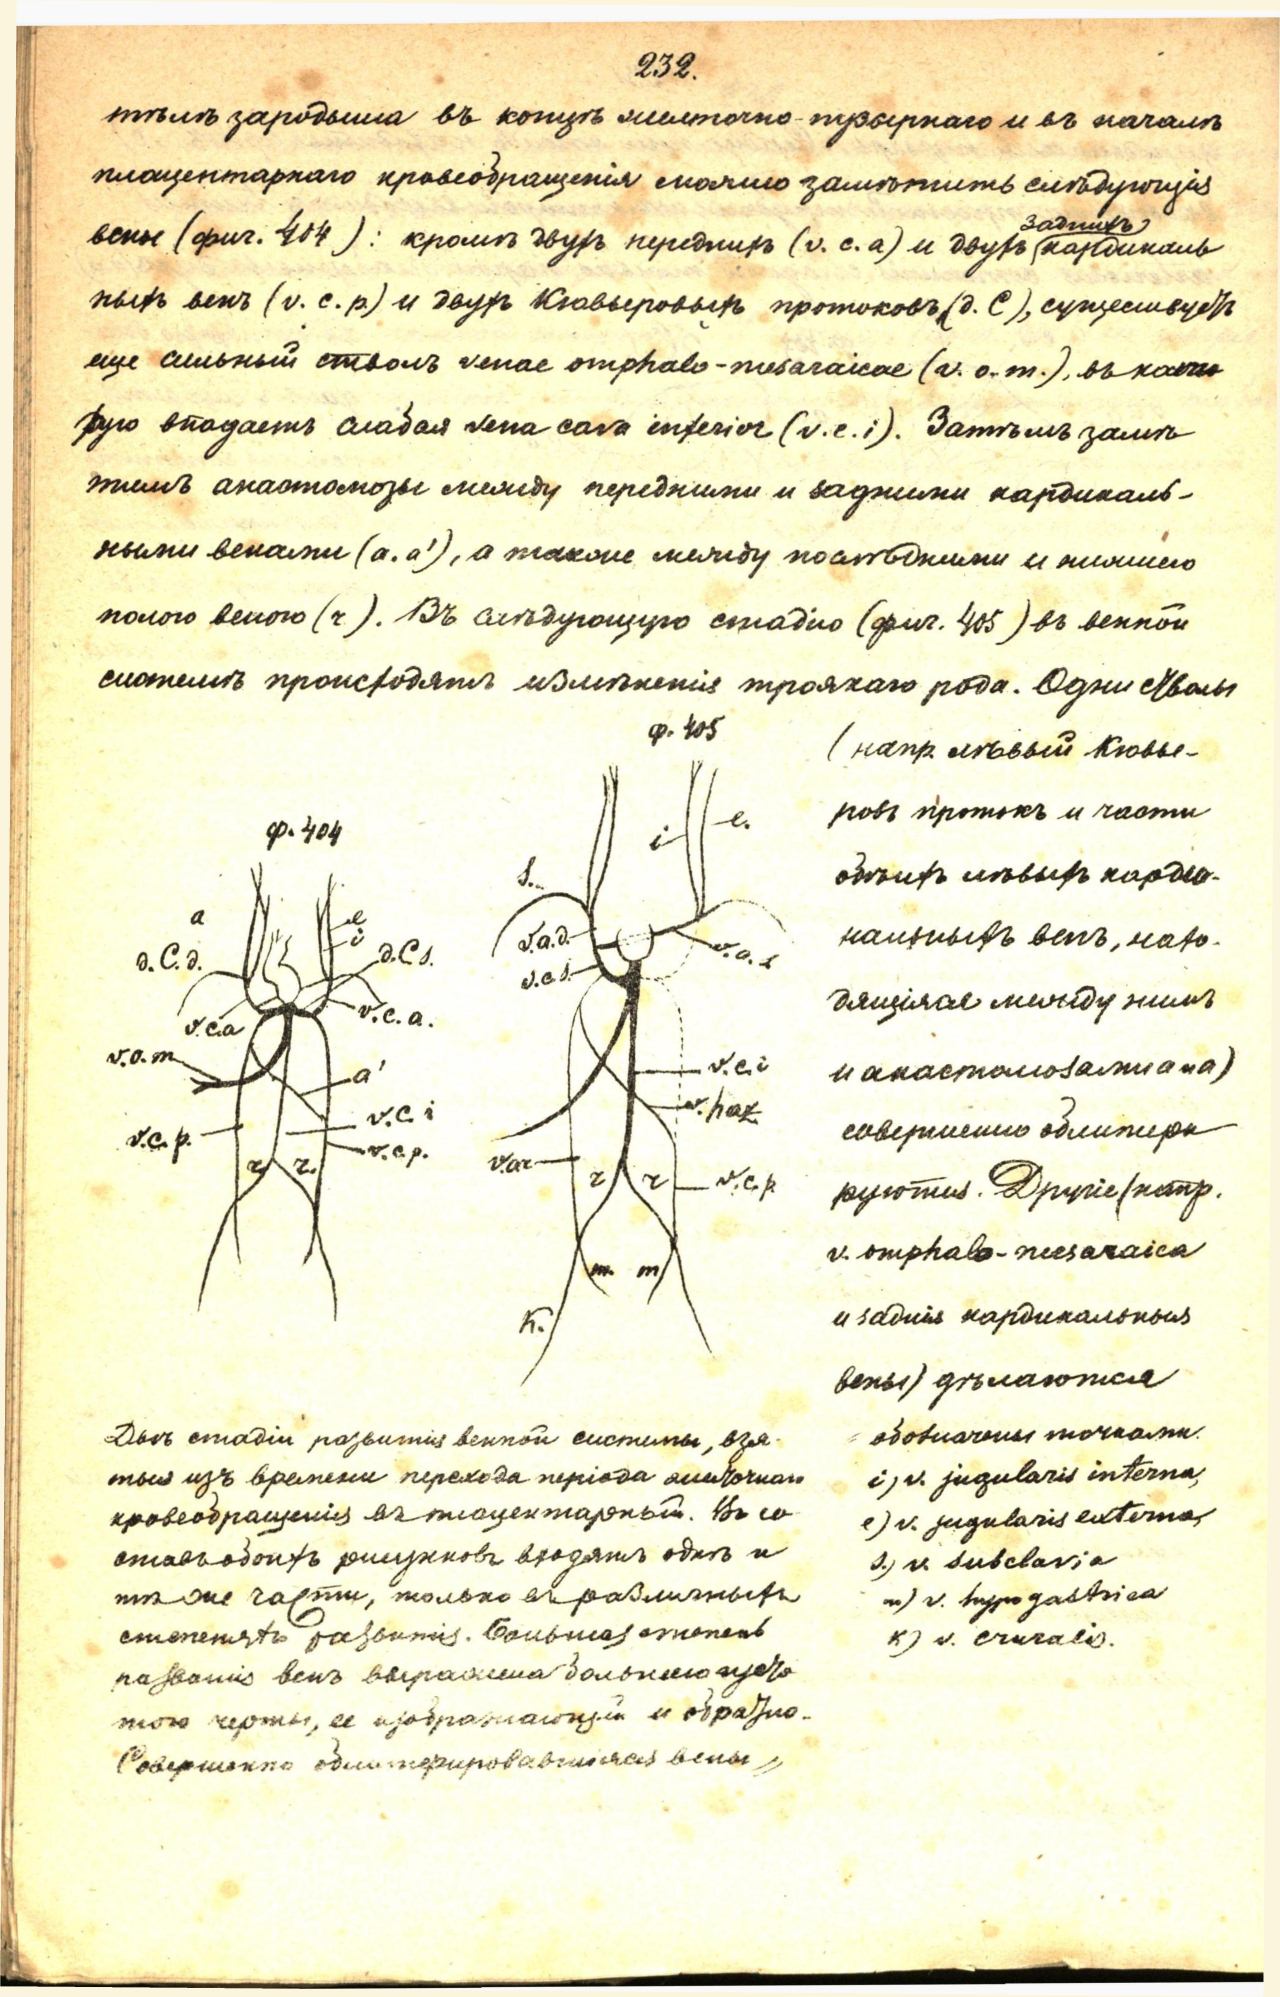 232.
тѣлѣ зародыша въ концѣ желточно-пузырнаго и въ началѣ
плацентарнаго кровеобращенія можно замѣтить слѣдующія
задних
вены (фиг. 404): кромѣ двухъ переднихъ (v. c. a) и двухъ кардиналь
ныхъ венъ (v. c. p) и двухъ Кювьеровыхъ протоковъ (d. C), существуетъ
еще сильный стволъ venae omphalo-mesaraicae (v. o. m.), въ кото
рую впадаетъ слабая vena cava inferior (v. c. i). Затѣмъ замѣ
тимъ анастомозы между передними и задними кардиналь-
ными венами (a. a'), а также между послѣдними и нижнею
полою веною (r). Въ слѣдующую стадію (фиг. 405) въ венной
системѣ происходятъ измѣненія троякаго рода. Одни стволы
(напр лѣвый Кювье-
ровъ протокъ и части
обѣихъ лѣвыхъ карди-
нальныхъ венъ, нахо-
дящіяся между нимъ
и анастомозами a и a)
совершенно облитери
руются. Другіе (напр.
v. omphalo-mesaraica
и заднія кардинальныя
вены) дѣлаются
ф. 404
a
e
i
d. C. d.
d. C s.
v. c. a
v. c. a.
v. o. m
a'
v. c. i
v. c. p.
v. c. p.
r
r.
ф. 405
i
e.
s.
v. a. d.
v. c. s.
v. a. s
v. c. i
v. haz
v. az
r
r
v. c. p.
m.
m
k.
Двѣ стадіи развитія венной системы, взя-
тыя изъ времени перехода періода желточнаго
кровеобращенія въ плацентарный. Въ со
ставъ обоихъ рисунковъ входятъ однѣ и
тѣ же части, только въ различныхъ
степеняхъ развитія. Большая степень
развитія венъ выражена большею густо
тою черты, ее изображающей и обратно.
Совершенно облитерировавшіяся вены
обозначены точками.
i) v. jugularis interna,
e) v. jugularis externa,
s.) v. subclavia
m) v. hypogastrica
k) v. cruralis.